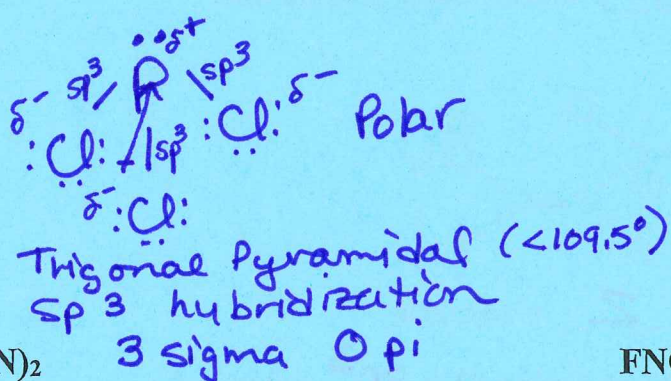 •• δ+
sp³ P sp³
δ- :Cl: sp³ :Cl: δ- Polar
δ- :Cl:
Trigonal Pyramidal (<109.5°)
sp3 hybridization
3 sigma 0 pi
N)₂ FN